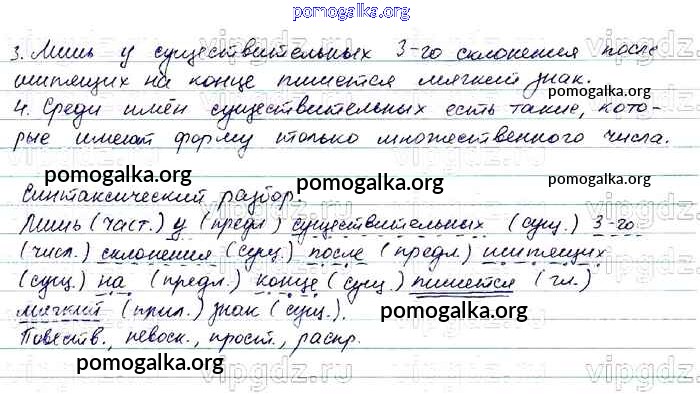 pomogalka.org
3. Лишь у существительных 3-го склонения после
шипящих на конце пишется мягкий знак.
pomogalka.org
4. Среди имён существительных есть такие, кото-
рые имеют форму только множественного числа.
pomogalka.org pomogalka.org pomogalka.org
Синтаксический разбор.
Лишь (част.) у (предл.) существительных (сущ.) 3-го
(числ.) склонения (сущ.) после (предл.) шипящих
(сущ.) на (предл.) конце (сущ.) пишется (гл.)
мягкий (прил.) знак (сущ.).
pomogalka.org pomogalka.org
Повеств., невоск., прост., распр.
pomogalka.org
vipgdz.ru vipgdz.ru vipgdz.ru